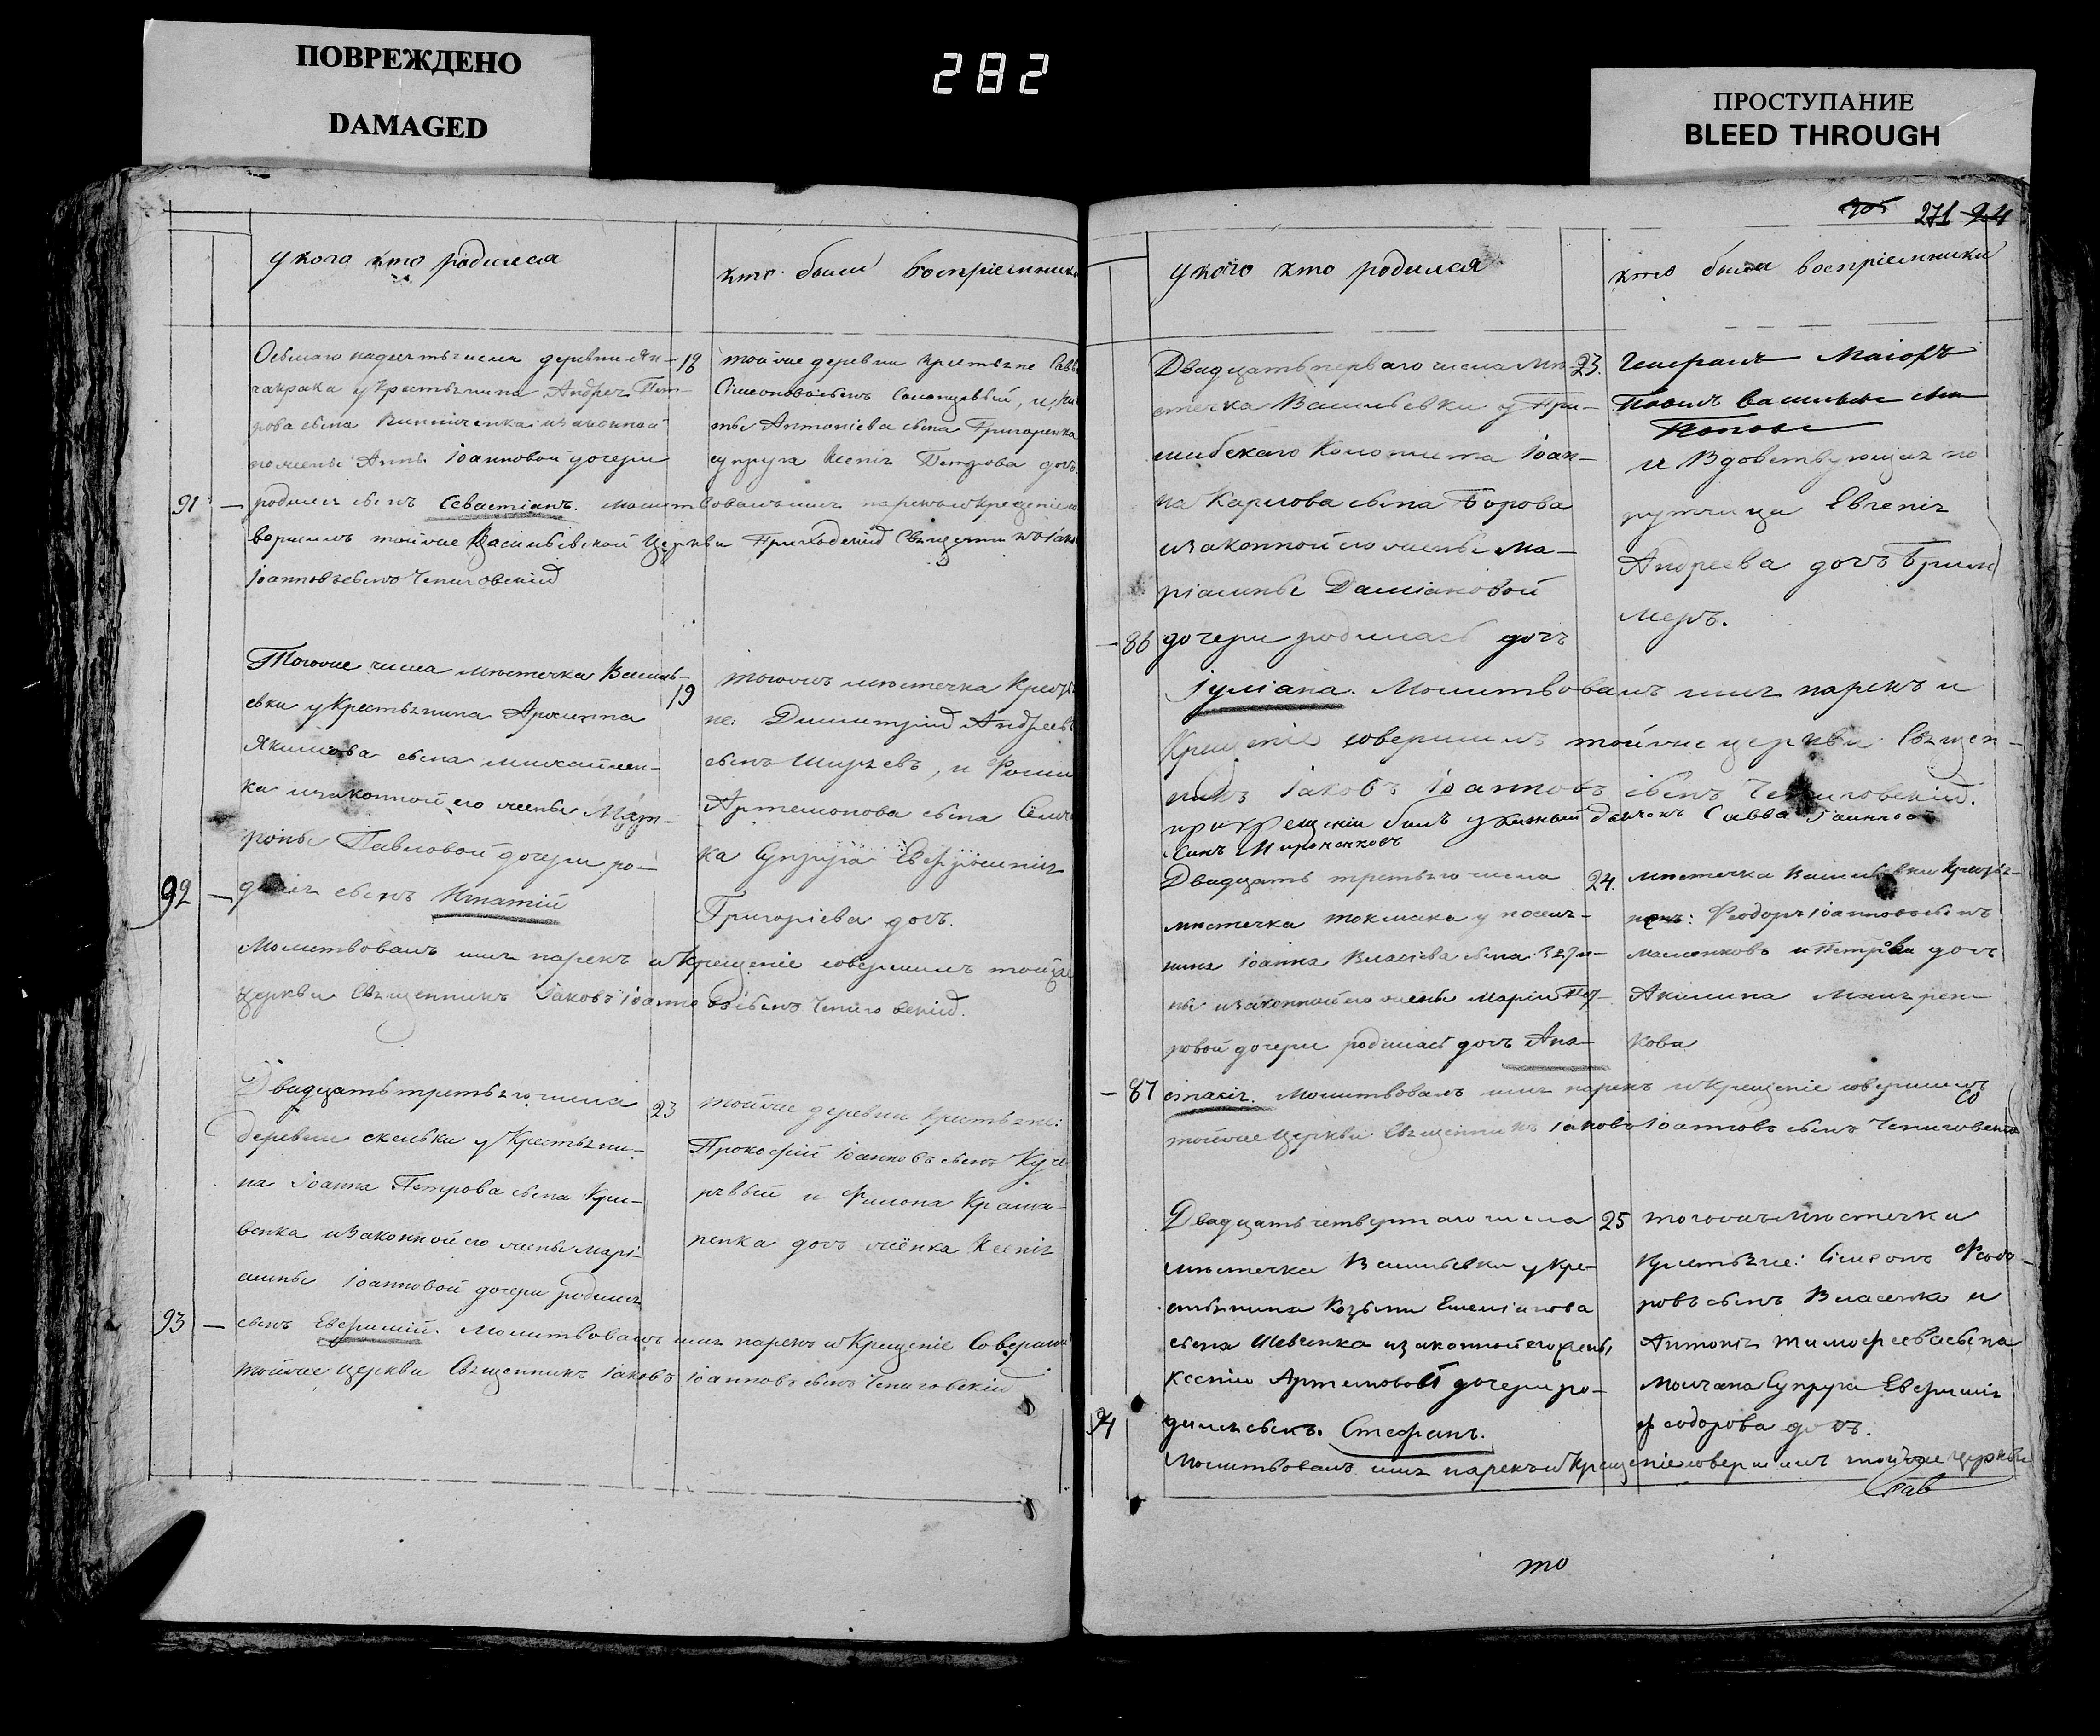 ПОВРЕЖДЕНО
DAMAGED
282
ПРОСТУПАНИЕ
BLEED THROUGH
у кого кто родился
кто были воспріемники
Осьмаго надесять числа деревни
у Крестьянина Андрея Пет-
рова сына Винниченка изаконной
его жены Анны Іоанновой дочери
91 — родился сынъ Севастіанъ. Молитвовалъ имя нарекъ и Крещеніе со
вершилъ тойже Васильевской Церкви Приходскій Священникъ Іаковъ
Іоанновъ сынъ Чепиговскій
18 тойже деревни крестьяне Савва
Сімеоновъ сынъ
Антоніева сына Григоренка
супруга Ксенія Петрова дочь
Тогоже числа мѣстечка Василь-
евки у Крестьянина Архиппа
Якимова сына Михайлен-
ка изаконной его жены Мат-
роны Павловой дочери ро-
92 — дился сынъ Игнатій
Молитвовалъ имя нарекъ и Крещеніе совершилъ тойже
Церкви Священникъ Іаковъ Іоанновъ сынъ Чепиговскій.
19 тогожъ мѣстечка Кресть
не: Димитрій Андреевъ
сынъ Ширяевъ, и
Артемонова сына
ка Супруга Евфросинія
Григоріева дочь.
Двадцать третьяго числа
деревни скельки у Крестьяни-
на Іоанна Петрова сына Кри-
венка изаконной его жены Марі-
амны Іоанновой дочери родился
93 — сынъ Евфимій. Молитвовалъ имя нарекъ и Крещеніе Совершилъ
тойже церкви Священникъ Іаковъ Іоанновъ сынъ Чепиговскій
23 тойже деревни крестьяне:
Прокофій Іоанновъ сынъ Куче-
рявый и Филона Крама-
ренка дочь жёнка Ксенія
271
у кого кто родился
кто были воспріемники
Двадцать перваго числа Мѣ-
стечка Васильевки у При-
шибскаго Колониста Іоан-
на Карлова сына Борова
изаконной его жены Ма-
ріамны Даміановой
— 86 дочери родилась дочь
Іуліана. Молитвовалъ имя нарекъ и
Крещеніе совершилъ тойже церкви Священ-
никъ Іаковъ Іоанновъ сынъ Чепиговскій.
при крещеніи былъ дьячокъ Савва
сынъ Мироненковъ
23. Генералъ Маіоръ
Павелъ васильевъ сынъ
Поповъ
и Вдовствующая по
ручица Евгенія
Андреева дочь Грим
меръ.
Двадцать третьяго числа
мѣстечка токмака у посел-
Іоанна Власіева сына
ны изаконной его жены Маріи
ровой дочери родилась дочь Ана-
— 87 стасія. Молитвовалъ имя нарекъ и Крещеніе совершилъ
тойже Церкви Священникъ Іаковъ Іоанновъ сынъ Чепиговскій
24. мѣстечка Васильевки Крестья-
Феодоръ Іоанновъ сынъ
Масленковъ и Петрова дочь
Акилина
кова
Двадцать четвертаго числа
мѣстечка Васильевки у Кре-
стьянина Козьмы Емеліанова
сына Шевченка изаконной его жены
Ксеніи Артемовой дочери ро-
94 дился сынъ. Стефанъ.
Молитвовалъ имя нарекъ и Крещеніе совершилъ тойже Церкви
25 тогожъ мѣстечка
Крестьяне: Сімеонъ Феодо-
ровъ сынъ Власенка и
Антонія тимофеева сына
Молчана Супруга Евфимія
феодорова дочь.
то